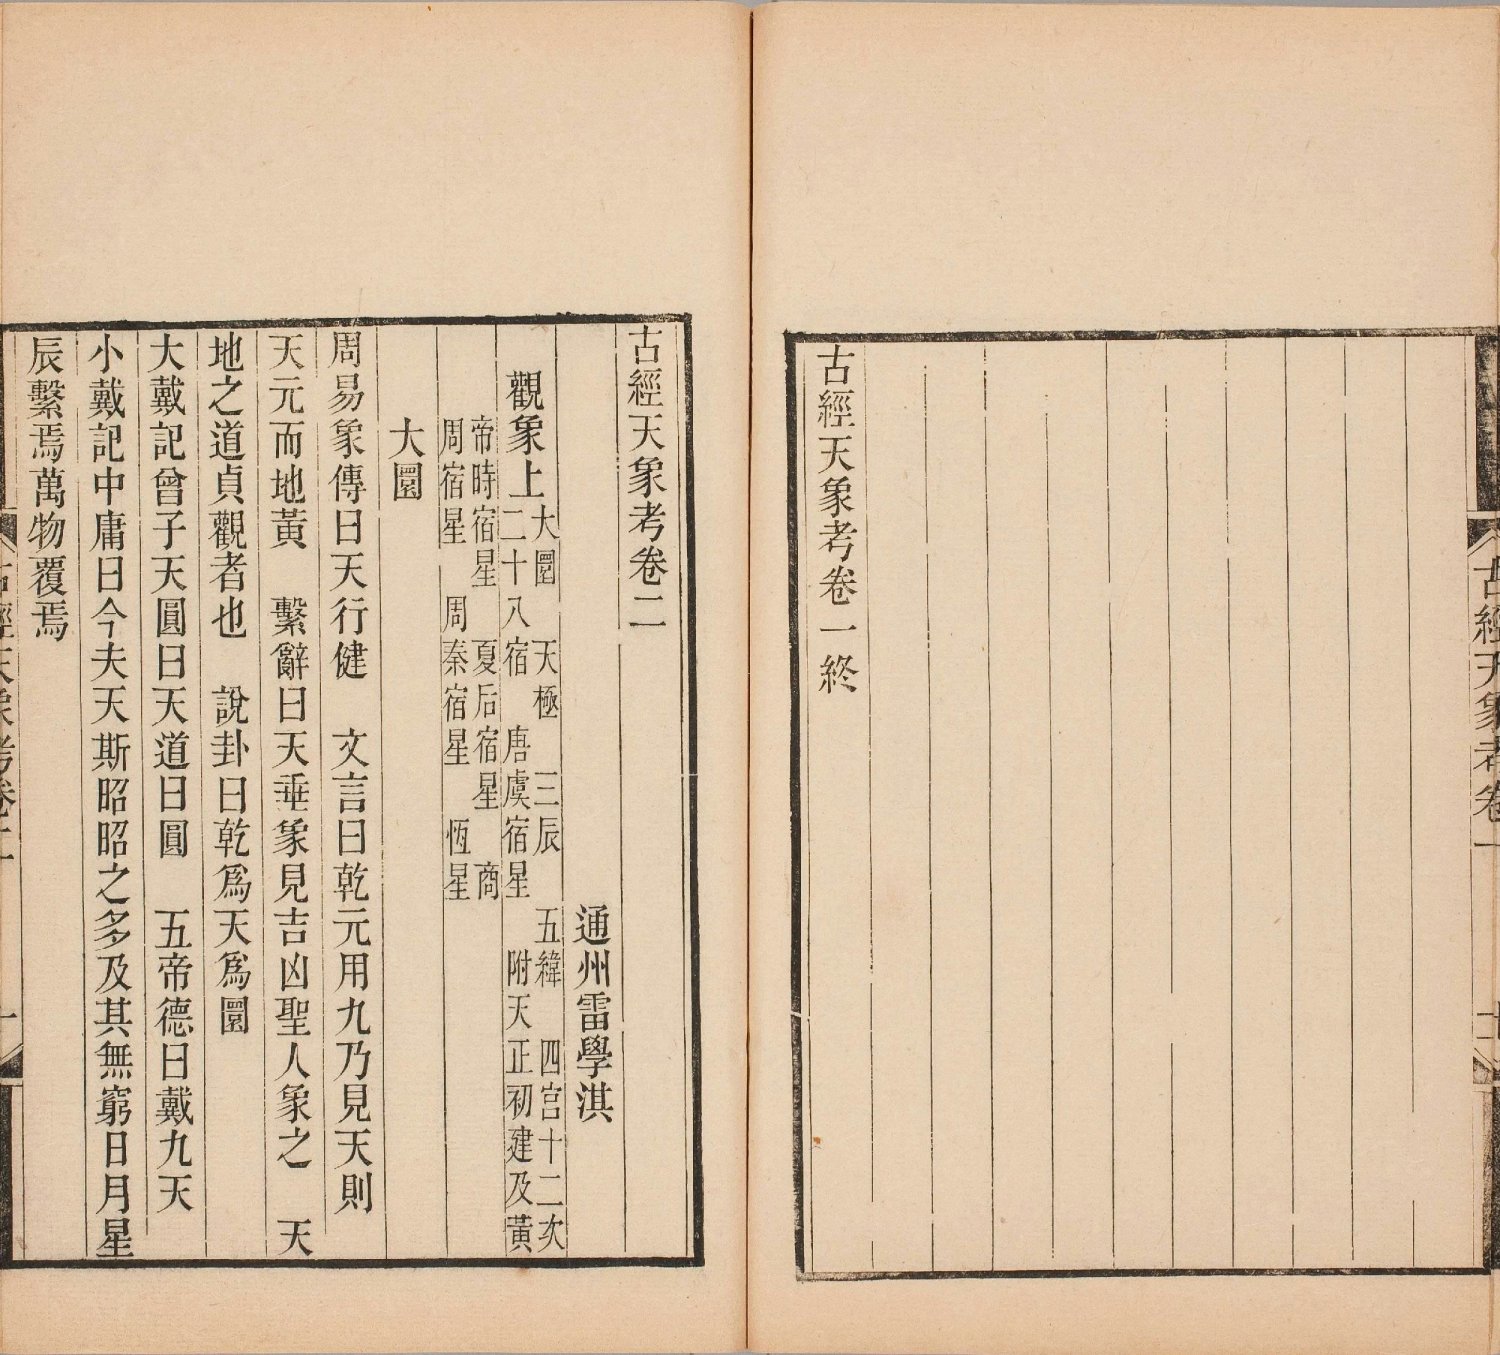 古經天象考卷一
古經天象考卷一終
古經天象考卷二
通州雷學淇
觀象上
大圜 天極 三辰 五緯 四宮十二次
二十八宿 唐虞宿星 附天正初建及黃
帝時宿星 夏后宿星 商
周宿星 周秦宿星 恆星
大圜
周易象傳曰天行健 文言曰乾元用九乃見天則
天元而地黃 繫辭曰天垂象見吉凶聖人象之 天
地之道貞觀者也 說卦曰乾爲天爲圜
大戴記曾子天圓曰天道曰圓 五帝德曰戴九天
小戴記中庸曰今夫天斯昭昭之多及其無窮日月星
辰繫焉萬物覆焉
古經天象考卷二
一